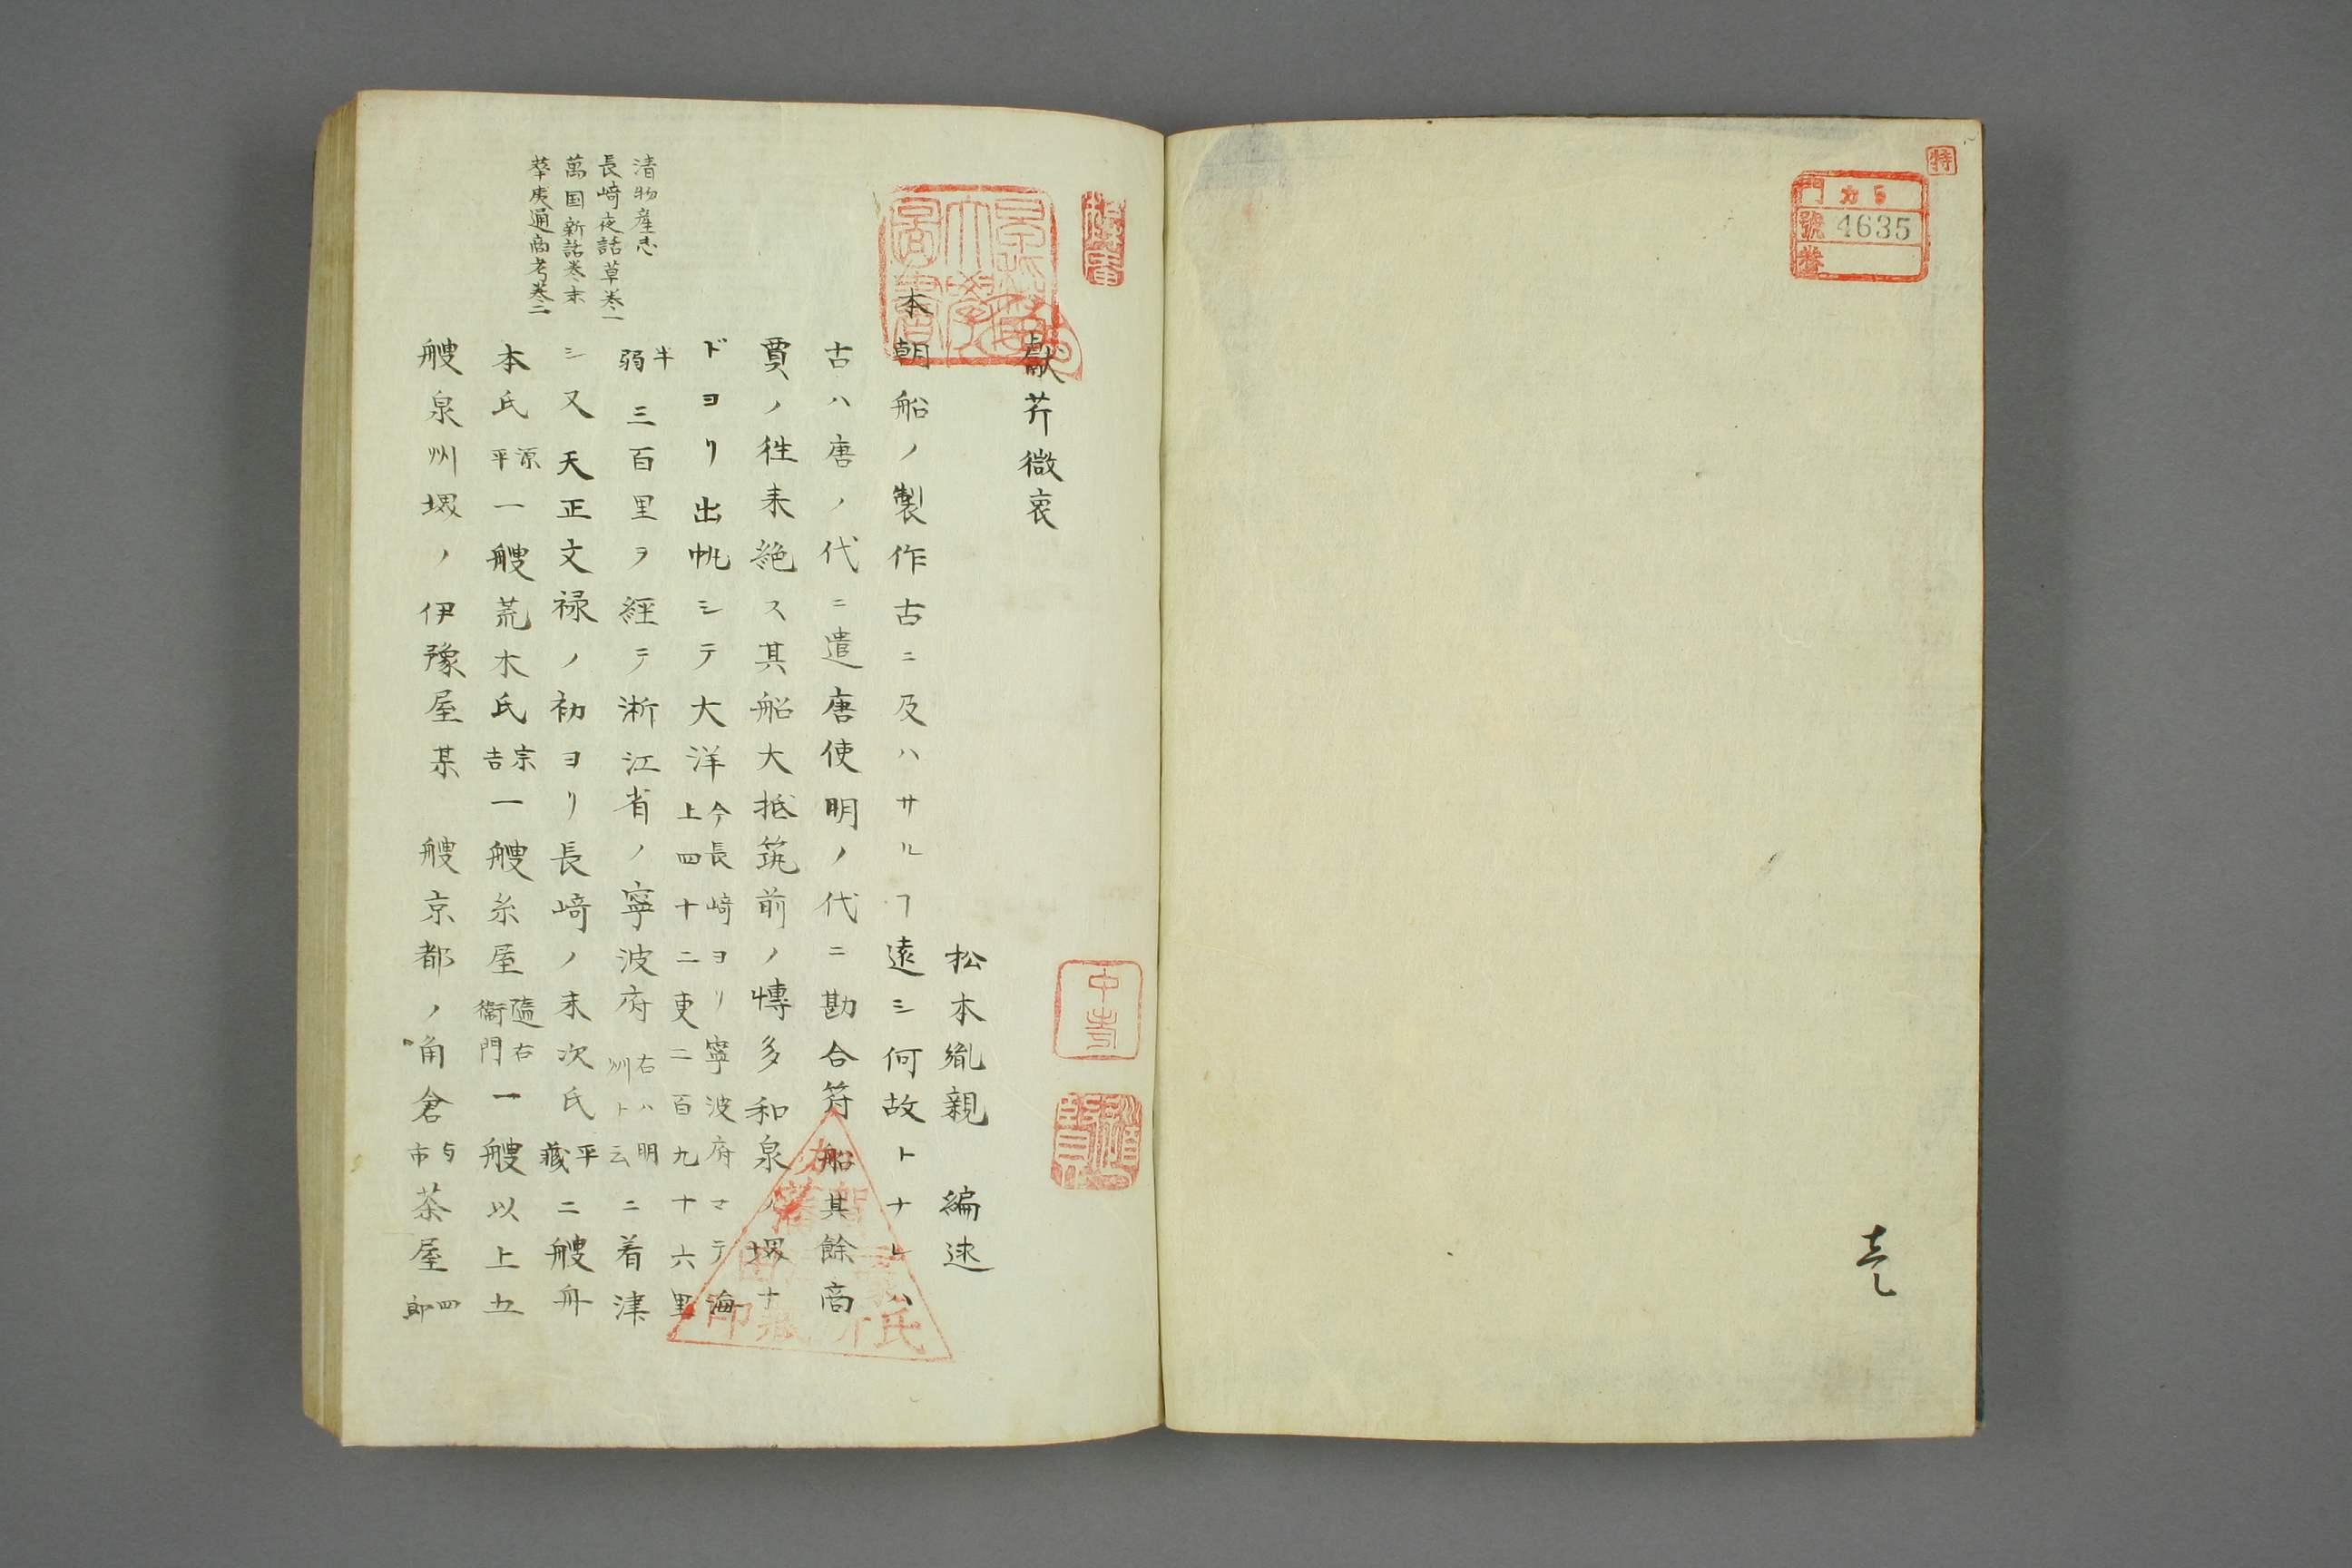 特
門 カ 5
號 4635
巻
壱
献芹微衷
松本胤親 編述
本朝船ノ製作古ニ及ハサルヿ遠シ何故トナレハ
古ハ唐ノ代ニ遣唐使明ノ代ニ勘合符船其餘商
賈ノ徃来絶ス其船大抵筑前ノ博多和泉ノ堺ナ
ドヨリ出帆シテ大洋今長崎ヨリ寧波府マテ海上四十二更二百九十六里
半弱三百里ヲ経テ淅江省ノ寧波府右ハ明州ト云ニ着津
シ又天正文禄ノ初ヨリ長崎ノ末次氏平蔵二艘舟
本氏源平一艘荒木氏宗吉一艘糸屋隨右衞門一艘以上五
艘泉州堺ノ伊豫屋某 艘京都ノ角倉与市茶屋四郎
清物産志
長崎夜話草巻一
萬国新話巻末
華夷通商考巻二